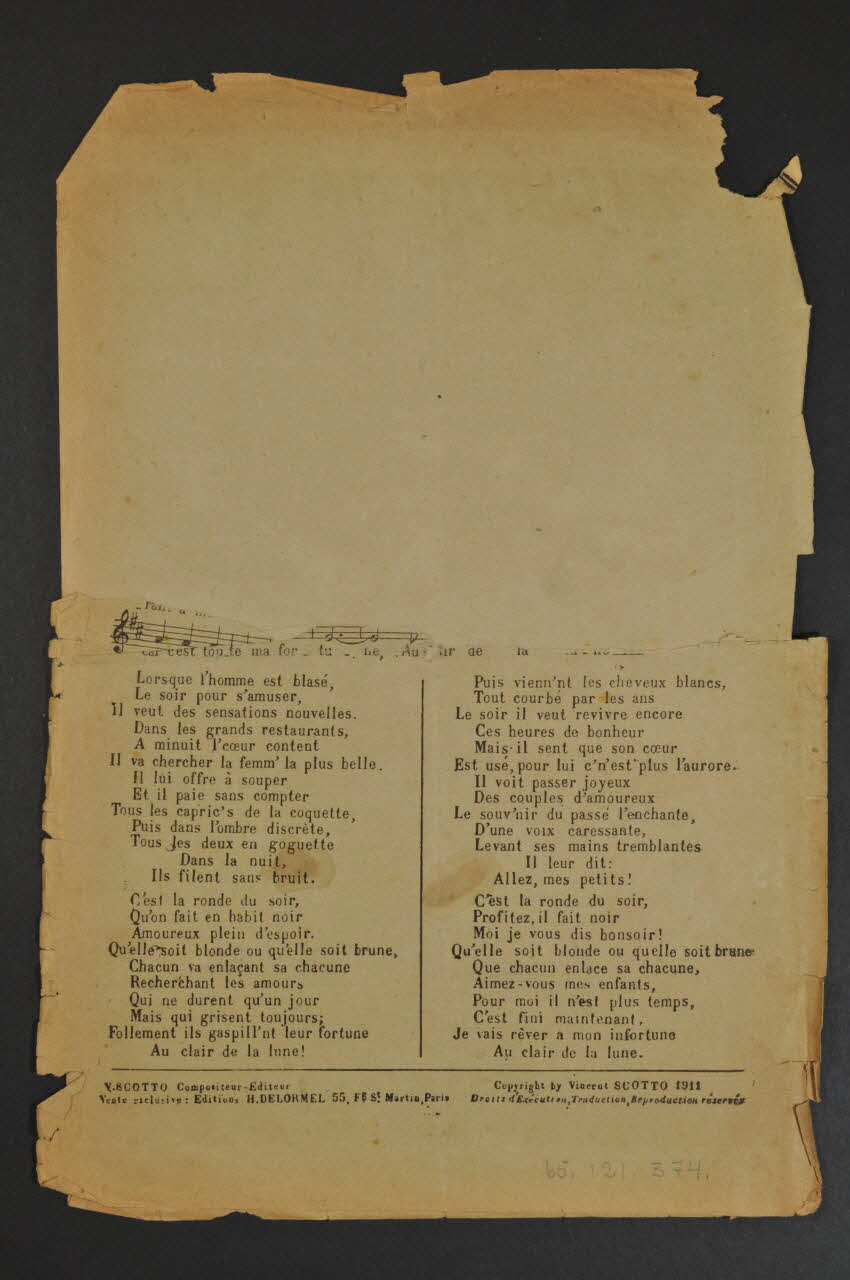 car c'est tou_te ma for_tu_ne, Au de la
Lorsque l'homme est blasé,
Le soir pour s'amuser,
Il veut des sensations nouvelles.
Dans les grands restaurants,
A minuit l'cœur content
Il va chercher la femm' la plus belle.
Il lui offre à souper
Et il paie sans compter
Tous les capric's de la coquette,
Puis dans l'ombre discrète,
Tous les deux en goguette
Dans la nuit,
Ils filent sans bruit.
C'est la ronde du soir,
Qu'on fait en habit noir
Amoureux plein d'espoir.
Qu'elle soit blonde ou qu'elle soit brune,
Chacun va enlaçant sa chacune
Recherchant les amours
Qui ne durent qu'un jour
Mais qui grisent toujours;
Follement ils gaspill'nt leur fortune
Au clair de la lune!
Puis vienn'nt les cheveux blancs,
Tout courbé par les ans
Le soir il veut revivre encore
Ces heures de bonheur
Mais il sent que son cœur
Est usé, pour lui c'n'est plus l'aurore.
Il voit passer joyeux
Des couples d'amoureux
Le souv'nir du passé l'enchante,
D'une voix caressante,
Levant ses mains tremblantes
Il leur dit:
Allez, mes petits!
C'est la ronde du soir,
Profitez, il fait noir
Moi je vous dis bonsoir!
Qu'elle soit blonde ou quelle soit brune
Que chacun enlace sa chacune,
Aimez-vous mes enfants,
Pour moi il n'est plus temps,
C'est fini maintenant,
Je vais rêver a mon infortune
Au clair de la lune.
V. SCOTTO Compositeur-Editeur
Vente exclusive: Editions H. DELORMEL 55, Fg St Martin, Paris
Copyright by Vincent SCOTTO 1911
Droits d'Exécution, Traduction, Reproduction réservés
65.121.374.